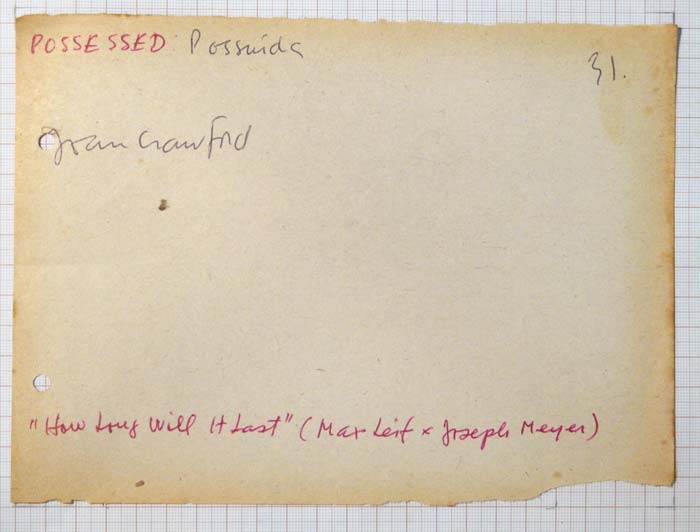 POSSESSED Possuida
31.
Joan Crawford
"How Long Will It Last" (Max Leif x Joseph Meyer)